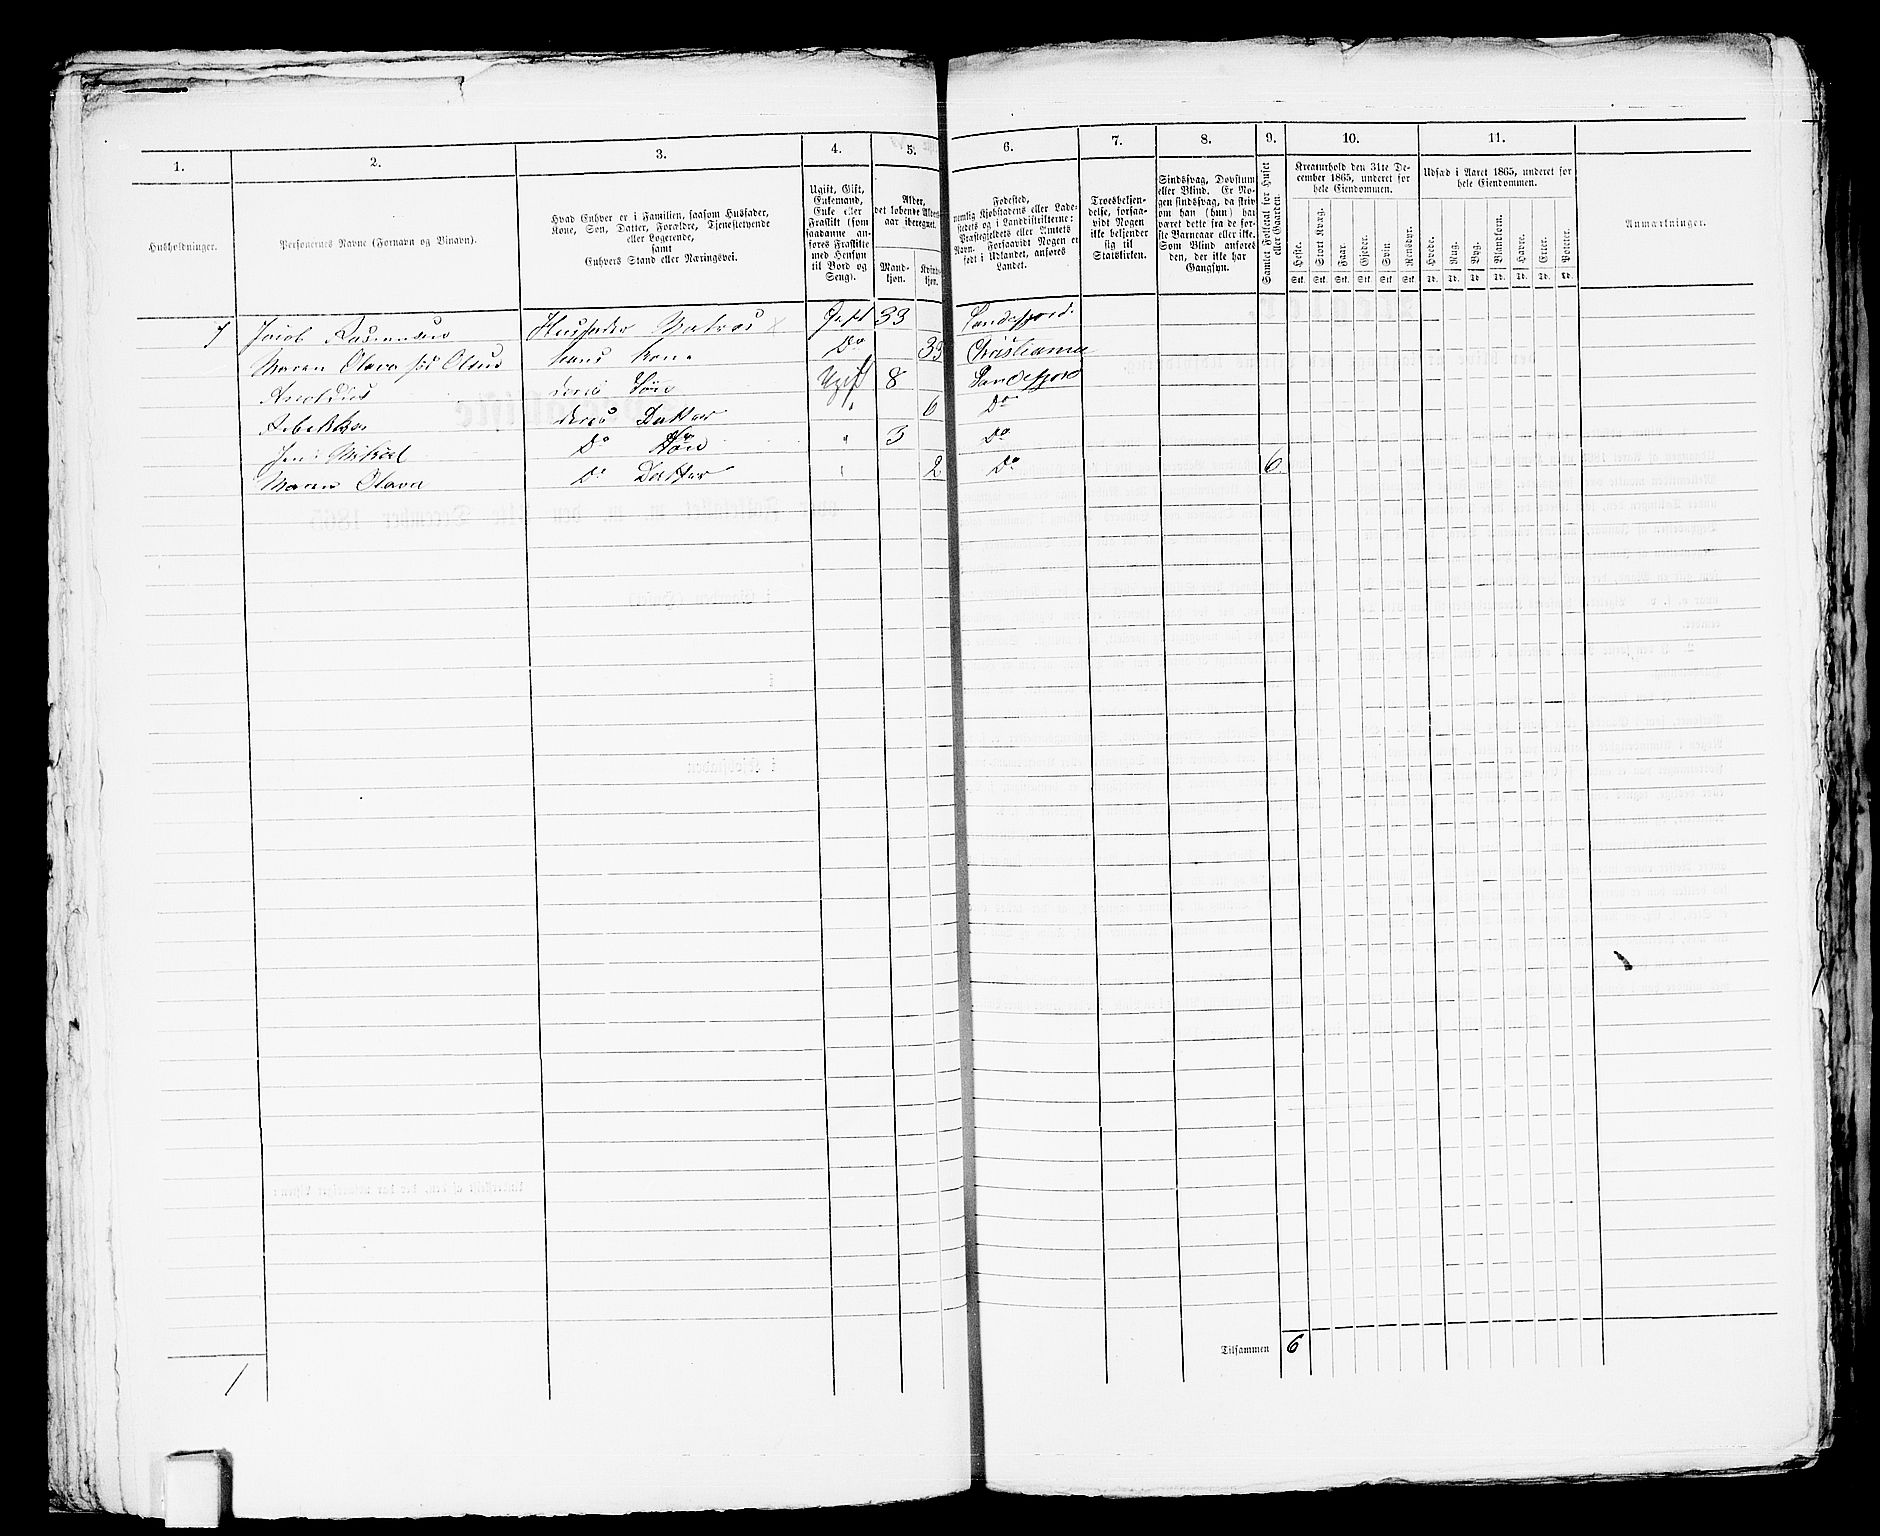 1. 2. 3. 4. 5. 6. 7. 8. 9. 10. 11.
Husholdninger.
Personernes Navne (Fornavn og Binavn).
Hvad Enhver er i Familien, saasom Husfader,
Kone, Søn, Datter, Forældre, Tjenestetyende
eller Logerende,
samt
Enhvers Stand eller Næringsvei.
Ugift, Gift,
Enkemand,
Enke eller
Fraskilt (som
saadanne an-
føres Fraskilte
med Hensyn
til Bord og
Seng).
Alder,
det løbende Alders-
aar iberegnet.
Mand-
kjøn.
Kvinde-
kjøn.
Fødested,
nemlig Kjøbstadens eller Lade-
stedets og i Landdistrikterne:
Præstegjeldets eller Amtets
Navn. Forsaavidt Nogen er
født i Udlandet, anføres
Landet.
Troesbekjen-
delse, forsaa-
vidt Nogen
ikke bekjender
sig til
Statskirken.
Sindssvag, Døvstum
eller Blind. Er No-
gen sindssvag, da skriv
om han (hun) har
været dette fra de før-
ste Barneaar eller ikke.
Som Blind anføres
den, der ikke har
Gangsyn.
Samlet Folketal for Huset
eller Gaarden.
Kreaturhold den 31te De-
cember 1865, underet for
hele Eiendommen.
Heste. Stort Kvæg. Faar. Gjeder. Svin. Rensdyr.
Stk. Stk. Stk. Stk. Stk. Stk.
Udsæd i Aaret 1865, underet for
hele Eiendommen.
Hvede. Rug. Byg. Blandkorn. Havre. Erter. Poteter.
Td. Td. Td. Td. Td. Td. Td.
Anmærkninger.
Jacob Rasmussen Husfader Matros Gift 33 Sandefjord.
Maren Olava Olsen hans Kone Do 33 Christiania
deres Søn Ugift 8 Sandefjord
deres Datter " 6 Do
Mikael Do Søn " 3 Do
Maren Olava Do Datter " 2 Do 6
Tilsammen 6
1